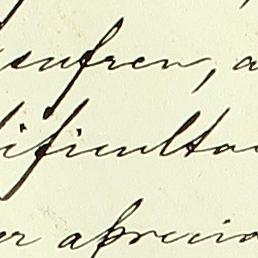 sufren, a
dificultad
er aprecia